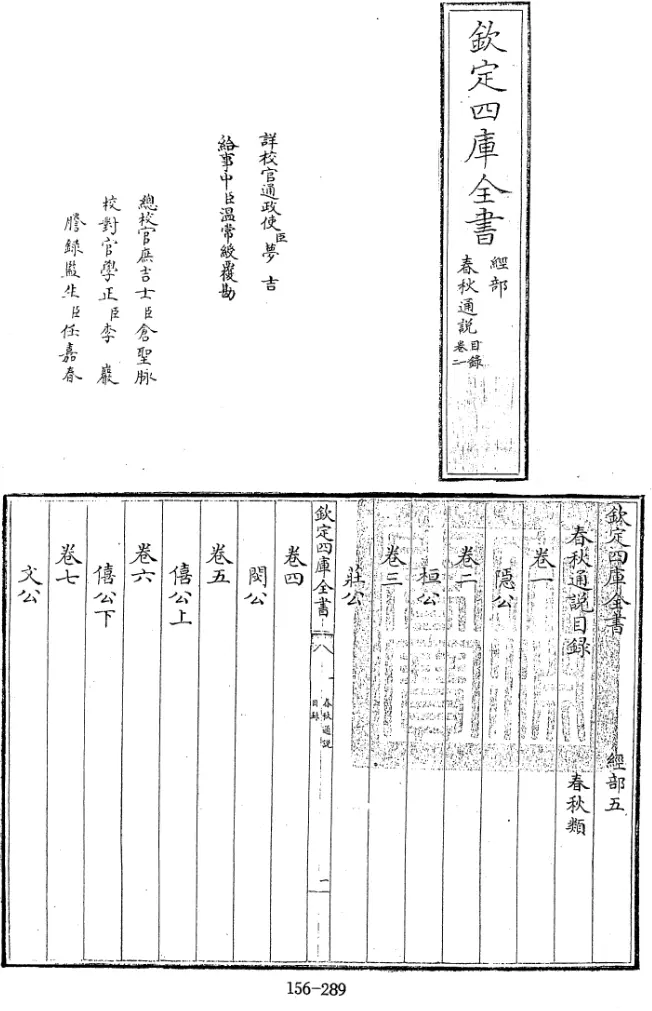 欽定四庫全書
經部
春秋通說
目錄
卷一
詳校官通政使臣夢吉
給事中臣溫常綬覆勘
總校官庶吉士臣倉聖脉
校對官學正臣李巖
謄錄監生臣任嘉春
欽定四庫全書 經部五
春秋通說目錄 春秋類
卷一
隱公
卷二
桓公
卷三
莊公
欽定四庫全書
春秋通說
目錄
一
卷四
閔公
卷五
僖公上
卷六
僖公下
卷七
文公
156-289